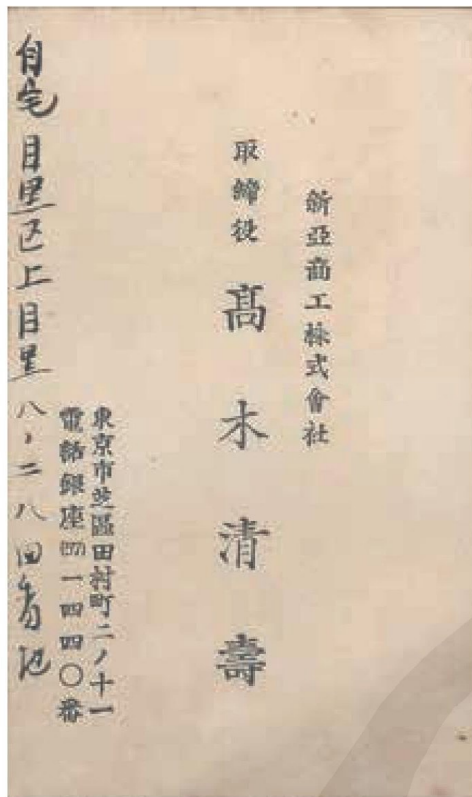 新亞商工株式會社
取締役 髙木清壽
東京市芝區田村町二ノ十一
電話銀座(57)一四四〇番
自宅 目黒区上目黒 八ノ二八四番地